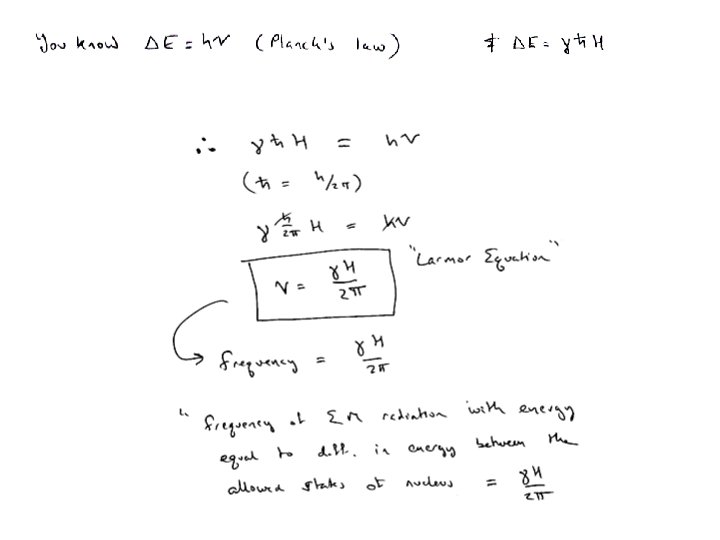 You know ΔE = hν (Planck's law) & ΔE = γħH
∴ γħH = hν
(ħ = h/2π)
γ h/2π H = hν
ν = γH/2π "Larmor Equation"
frequency = γH/2π
" frequency of EM radiation with energy
equal to diff. in energy between the
allowed states of nucleus = γH/2π